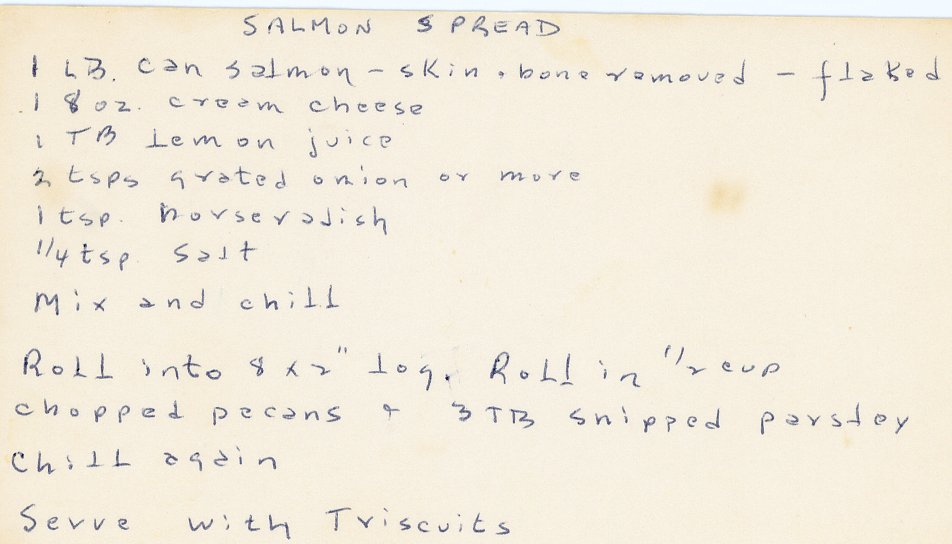 SALMON SPREAD
1 LB. can salmon - skin + bone removed - flaked
1 8 oz. cream cheese
1 TB lemon juice
2 tsps grated onion or more
1 tsp. horseradish
1/4 tsp. salt
Mix and chill
Roll into 8 x 2" log. Roll in 1/2 cup
chopped pecans + 3 TB snipped parsley
Chill again
Serve with Triscuits